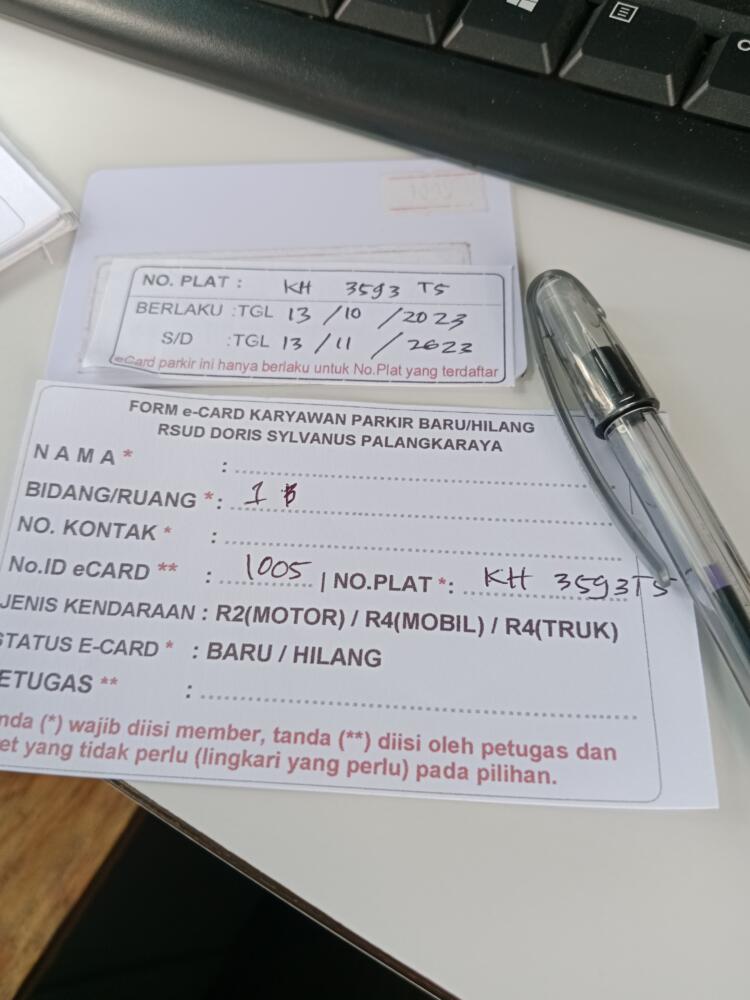 NO. PLAT : KH 3593 TS
BERLAKU :TGL 13 / 10 / 2023
S/D :TGL 13 / 11 / 2023
eCard parkir ini hanya berlaku untuk No.Plat yang terdaftar
FORM e-CARD KARYAWAN PARKIR BARU/HILANG
RSUD DORIS SYLVANUS PALANGKARAYA
N A M A * :
BIDANG/RUANG *: 1
NO. KONTAK * :
No.ID eCARD ** : 1005 | NO.PLAT *: KH 3593TS
JENIS KENDARAAN : R2(MOTOR) / R4(MOBIL) / R4(TRUK)
STATUS E-CARD * : BARU / HILANG
ETUGAS ** :
nda (*) wajib diisi member, tanda (**) diisi oleh petugas dan
et yang tidak perlu (lingkari yang perlu) pada pilihan.